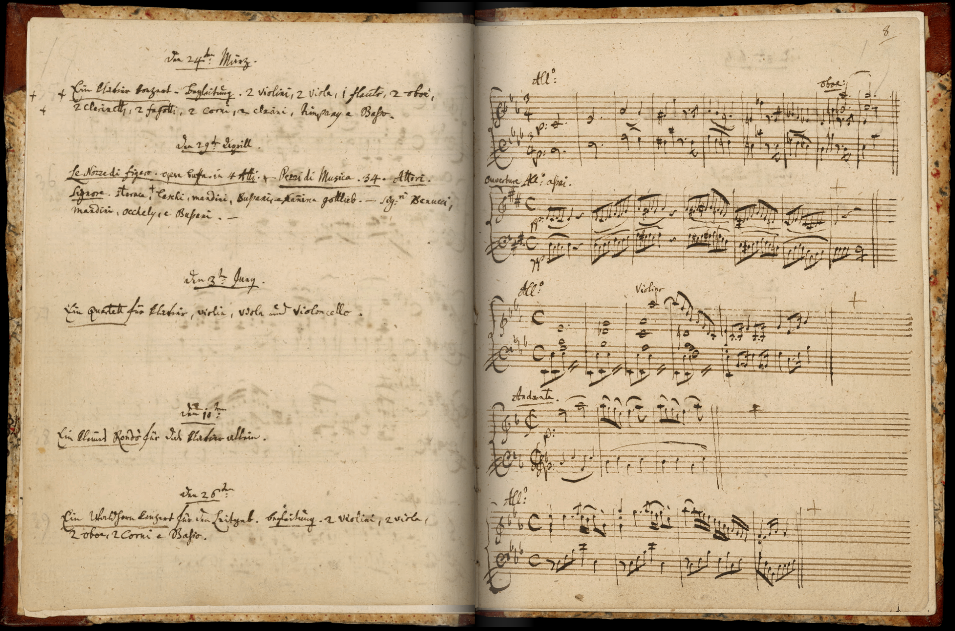 den 24:ten März.
Ein klavier konzert. Begleitung. 2 violini, 2 viole, 1 flauto, 2 oboi,
2 clarinetti, 2 fagotti, 2 corni, 2 clarini, timpany e Baßo.
den 29:ten Aprill.
le Nozze di figaro. opera buffa. in 4 Atti. Pezzi di Musica. 34. Attori.
Signore. storace, laschi, mandini, Bussani, e Nannina gottlieb. — Sig:ri Benucci,
mandini, occhely, e Bussani. —
den 3:ten Juny.
Ein quartett für klavier, violin, viola und violoncello.
den 10:ten
Ein kleines Rondò für das klavier allein.
den 26:ten
Ein Waldhorn konzert für den leitgeb. begleitung. 2 violini, 2 viole,
2 oboe, 2 Corni e Baßo.
8
All:o
oboi
p:
p:
ouverture All:o aßai.
pp:
pp:
All:o
Violino
Andante
p:
All:o